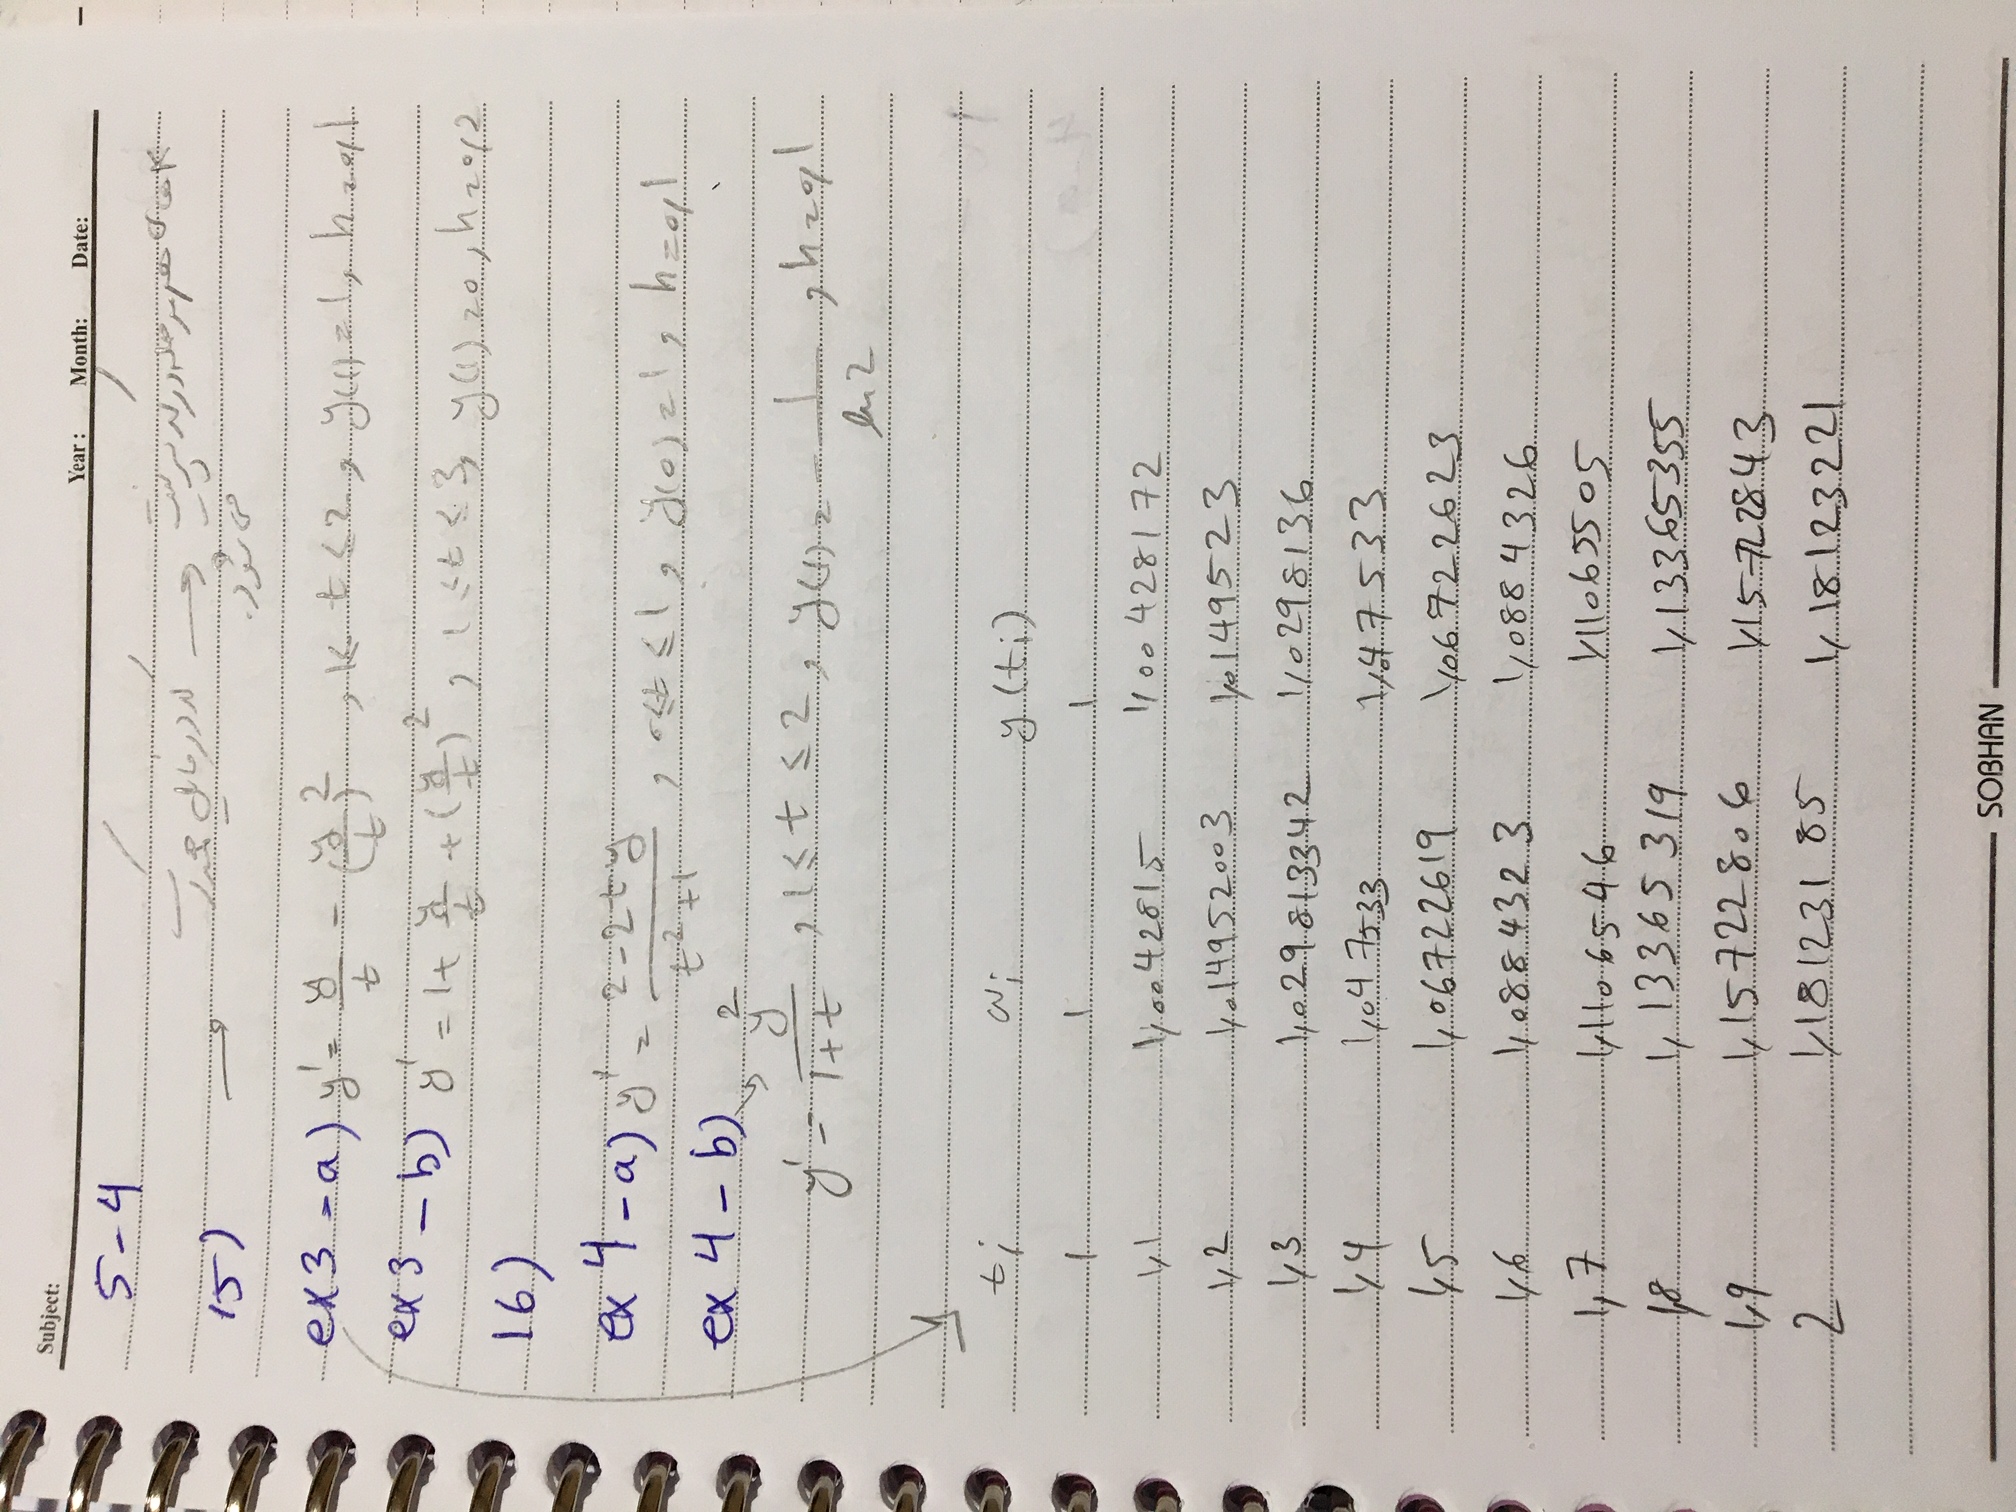 Subject:
Year: Month: Date:
5-4
15)
ex3-a) y' = y/t - (y/t)², 1≤ t ≤ 2, y(1) = 1, h = 0/1
ex3-b) y' = 1 + y/t + (y/t)², 1 ≤ t ≤ 3, y(1) = 0, h = 0/2
16)
ex 4-a) y' = (2-2ty)/(t²+1), 0≤t ≤ 1, y(0) = 1, h = 0/1
ex 4-b)
y' = y²/(1+t), 1 ≤ t ≤ 2, y(1) = -1/ln2, h = 0/1
ti wi y(ti)
1 1 1
1,1 1,0042815 1,00428172
1,2 1,014952003 1,0149523
1,3 1,029813342 1,0298136
1,4 1,047533 1,047533
1,5 1,06722619 1,06722623
1,6 1,0884323 1,0884326
1,7 1,1106546 1,11065505
1,8 1,13365319 1,13365355
1,9 1,15722806 1,15722843
2 1,18123185 1,1812322
SOBHAN